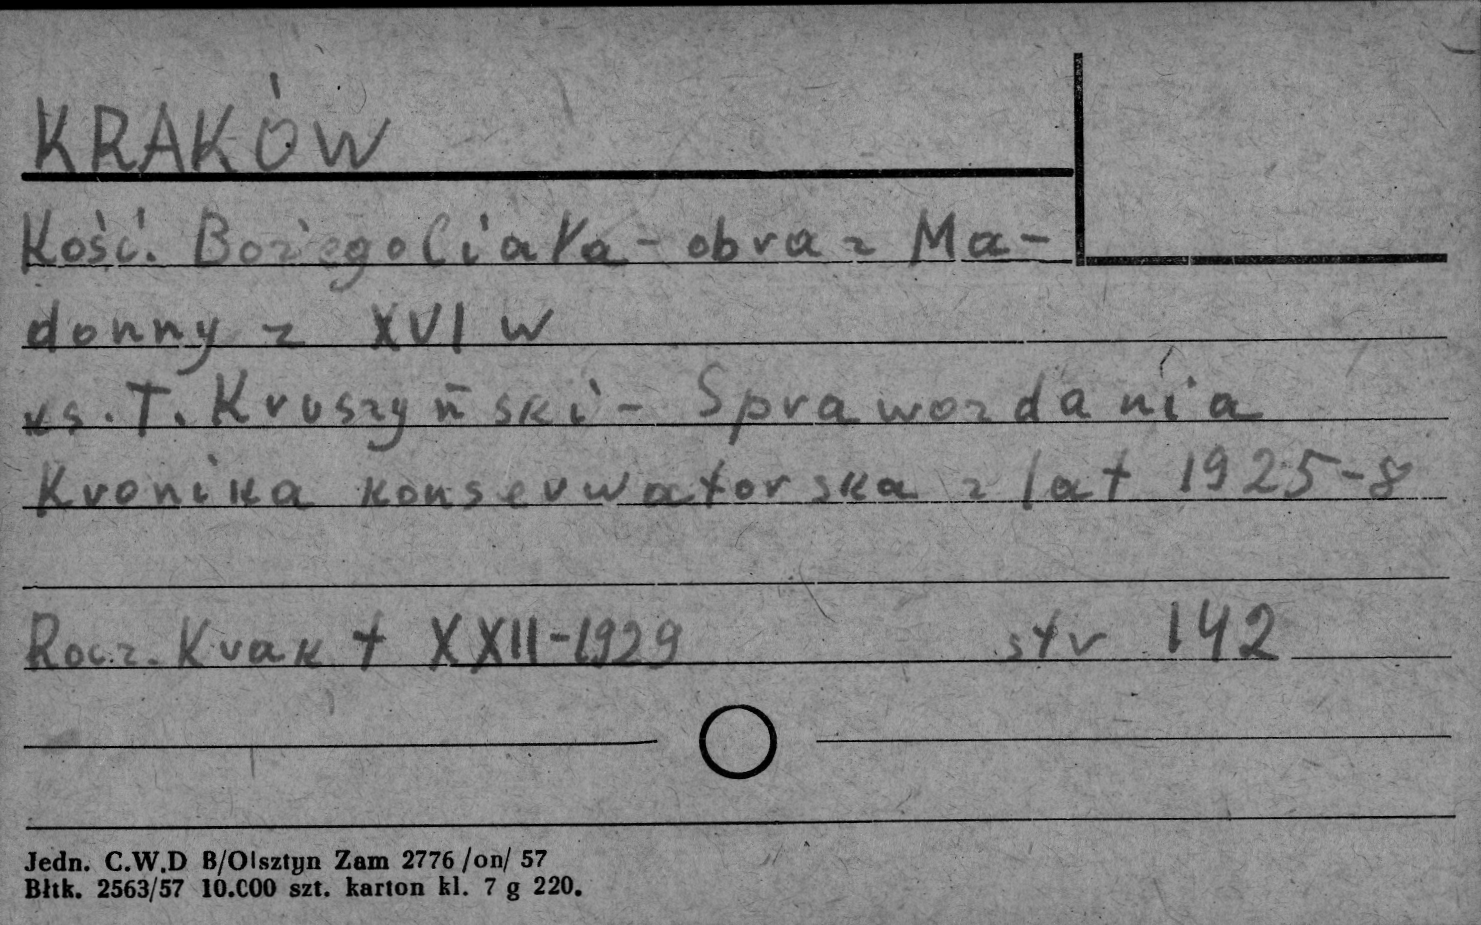 KRAKÓW
Kość. Bożego Ciała - obraz Ma-
donny z XVI w
ks. T. Kruszyński - Sprawozdania
Kronika konserwatorska z lat 1925-8
Rocz. Krak t XXII-1929 str 142
Jedn. C.W.D B/Olsztyn Zam 2776/on/57
Błtk. 2563/57 10.C00 szt. karton kl. 7 g 220.